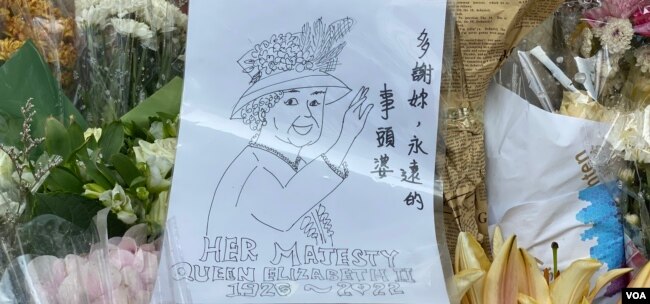 多謝妳，永遠的
事頭婆
HER MAJESTY
QUEEN ELIZABETH II
1926 ~ 2022
VOA